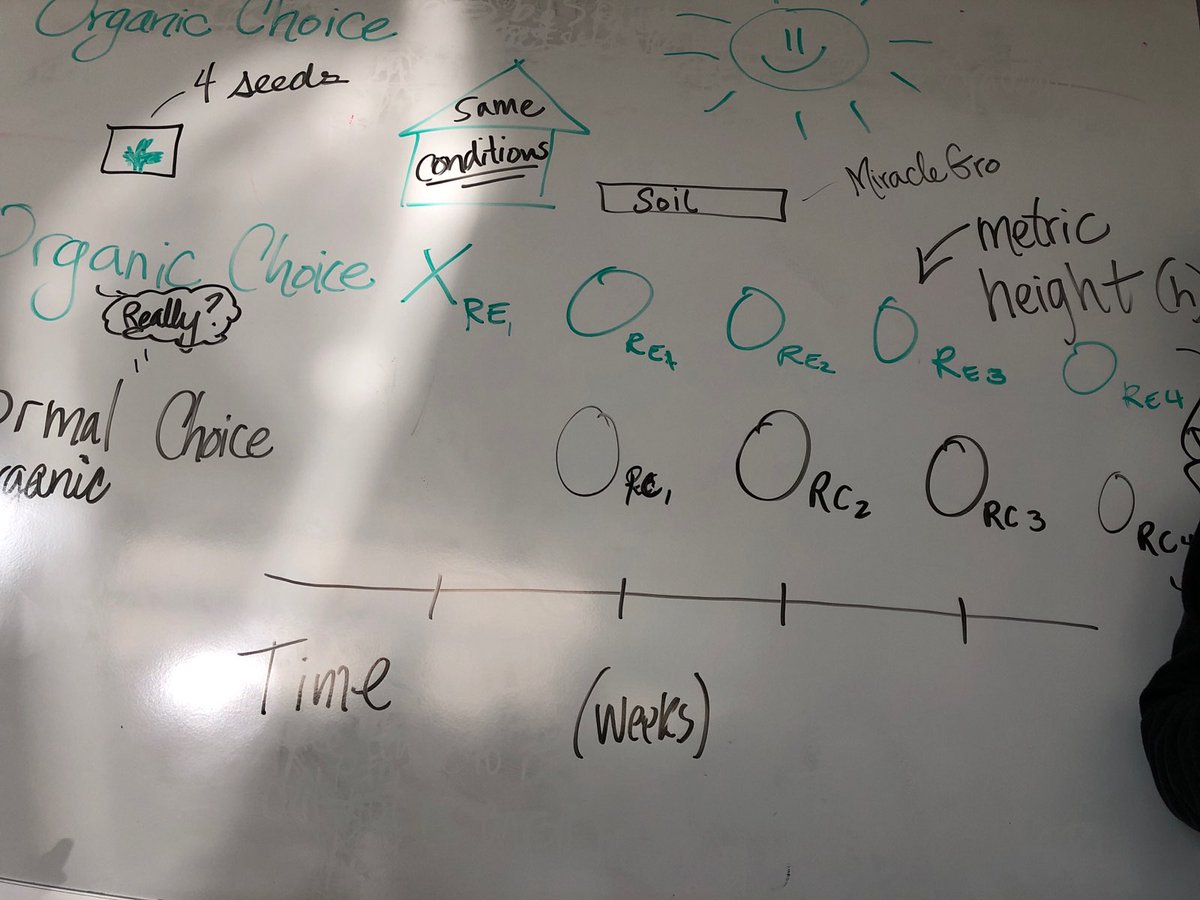 Organic Choice
4 seeds
Same
Conditions
Soil
MiracleGro
metric
height (h)
Organic Choice
X RE1
O RE1
O RE2
O RE3
O RE4
Really?
ormal Choice
rganic
O RC1
O RC2
O RC3
O RC4
Time
(weeks)